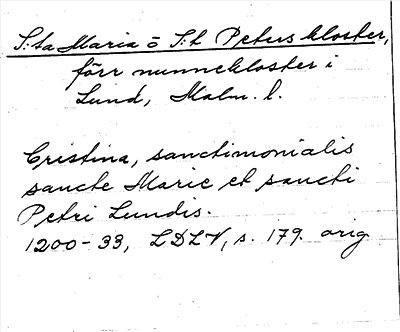 S:ta Maria o S:t Peters kloster,
förr nunnekloster i
Lund, Malm. l.
Cristina, sanctimonialis
sancte Marie et sancti
Petri Lundis.
1200-33, LDLV, s. 179. orig